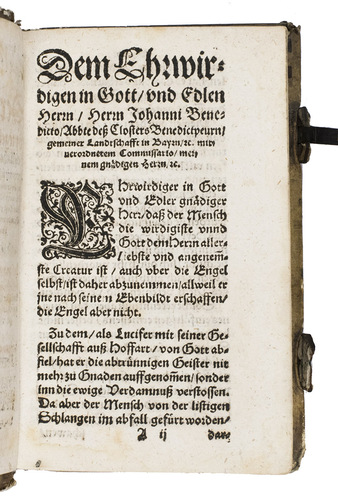 Dem Ehrwir-
digen in Gott/ vnd Edlen
Herrn/ Herrn Johanni Bene-
dicto/ Abbte deß Closters Benedictpeurn/
gemeiner Landtschafft in Bayrn/ ꝛc. mit
verordnetem Commissario/ mei-
nem gnädigen Herrn, ꝛc.
EHrwirdiger in Gott
vnd Edler gnädiger
Herr/ daß der Mensch
die wirdigiste vnnd
Gott dem Herrn aller-
liebste vnd angenem̃-
ste Creatur ist/ auch vber die Engel
selbst/ ist daher abzunemmen/ allweil er
jne nach seinen Ebenbildt erschaffen/
die Engel aber nicht.
Zu dem/ als Lucifer mit seiner Ge-
sellschafft auß Hoffart/ von Gott ab-
fiel/ hat er die abtrünnigen Geister nit
mehr zu Gnaden auffgenom̃en/ sonder
inn die ewige Verdamnuß verstossen.
Da aber der Mensch von der listigen
Schlangen im abfall gefürt worden/
A ij